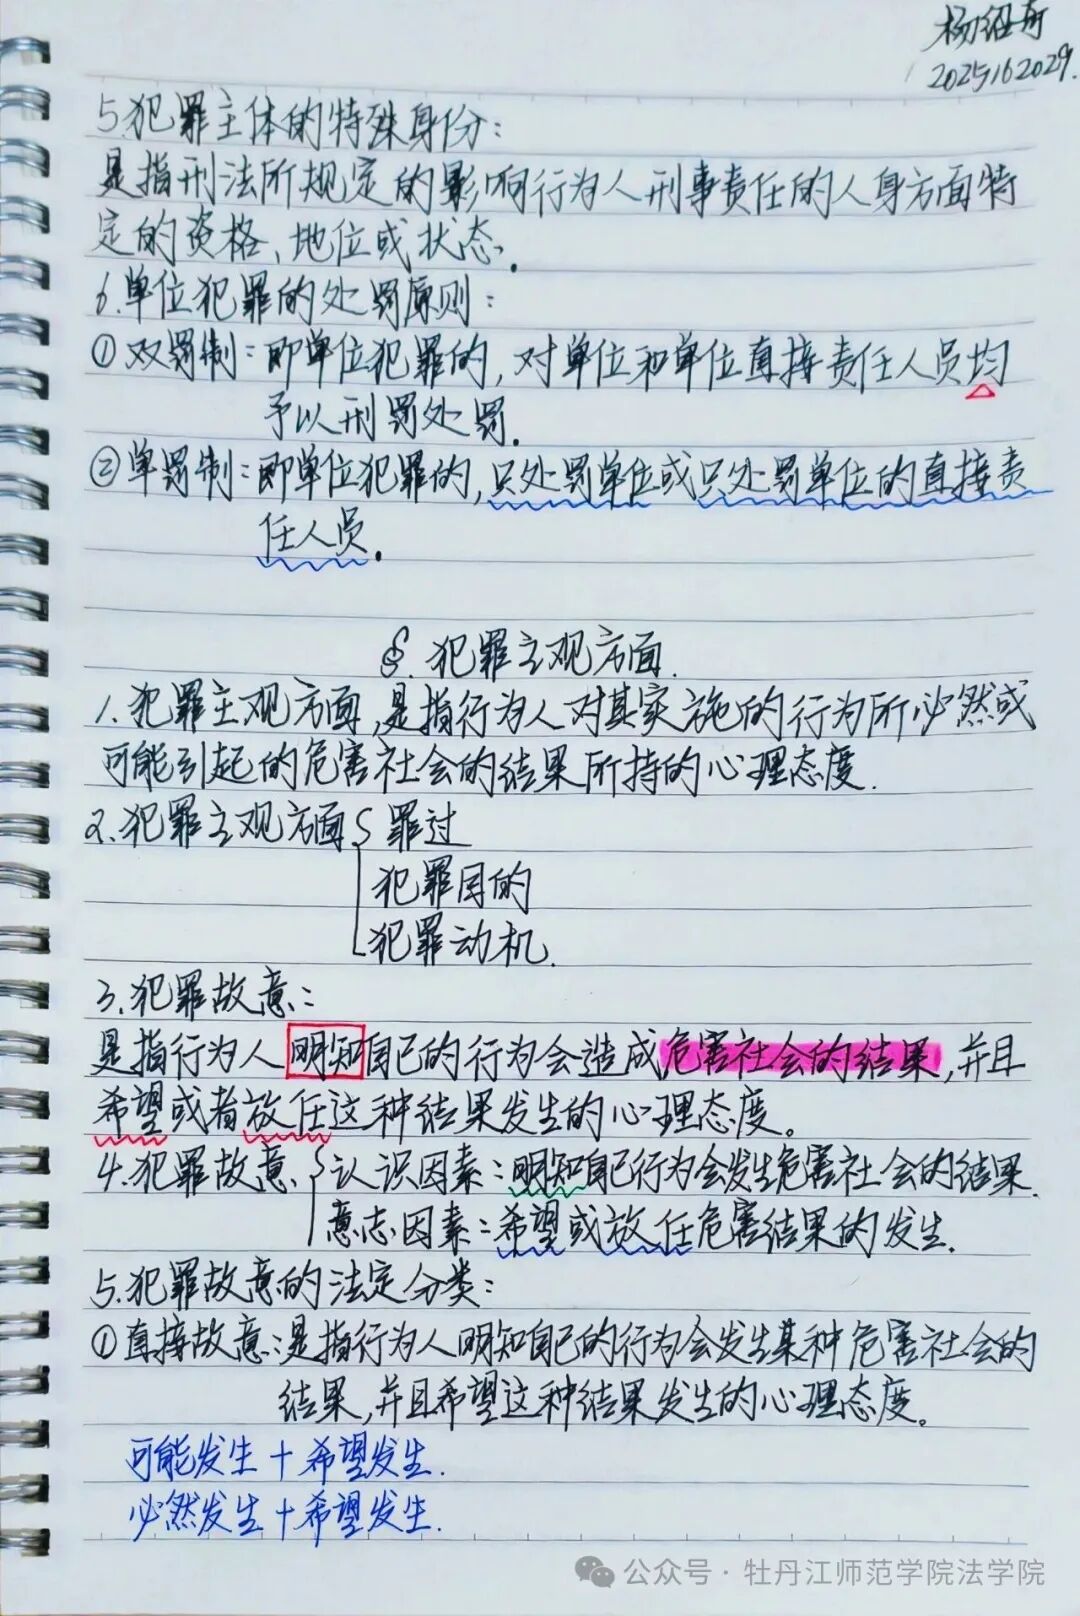 杨绍奇
2025162029.
5.犯罪主体的特殊身份:
是指刑法所规定的影响行为人刑事责任的人身方面特
定的资格、地位或状态.
6.单位犯罪的处罚原则:
①双罚制:即单位犯罪的,对单位和单位直接责任人员均
予以刑罚处罚.
②单罚制:即单位犯罪的,只处罚单位或只处罚单位的直接责
任人员.
§.犯罪主观方面.
1.犯罪主观方面,是指行为人对其实施的行为所必然或
可能引起的危害社会的结果所持的心理态度.
2.犯罪主观方面 罪过
犯罪目的
犯罪动机.
3.犯罪故意:
是指行为人明知自己的行为会造成危害社会的结果,并且
希望或者放任这种结果发生的心理态度。
4.犯罪故意. 认识因素:明知自己行为会发生危害社会的结果.
意志因素:希望或放任危害结果的发生.
5.犯罪故意的法定分类:
①直接故意:是指行为人明知自己的行为会发生某种危害社会的
结果,并且希望这种结果发生的心理态度。
可能发生+希望发生.
必然发生+希望发生.
公众号·牡丹江师范学院法学院